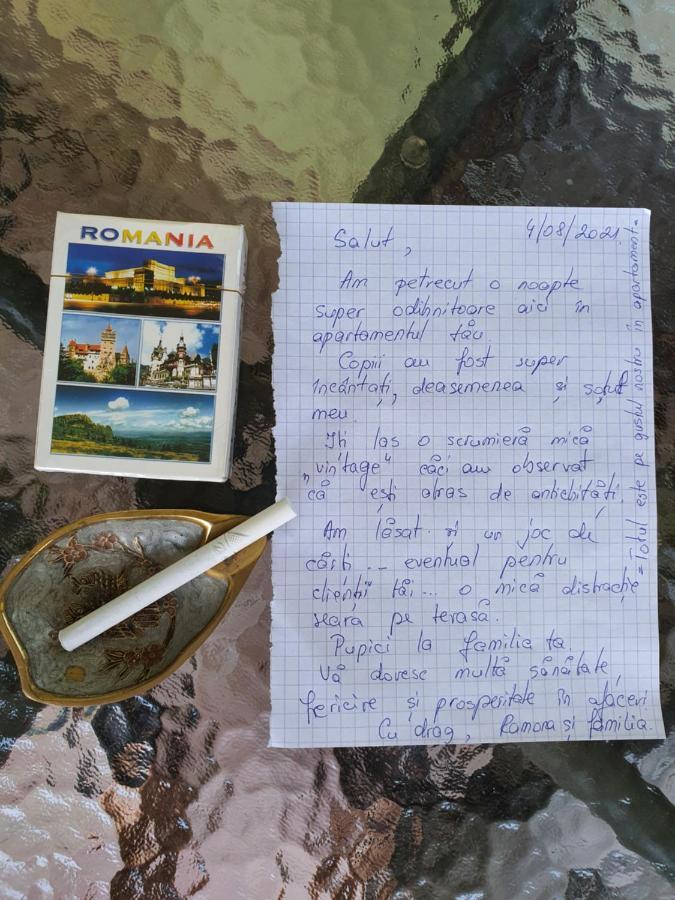 ROMANIA
Salut,
4/08/2021
Am petrecut o noapte
super odihnitoare aici în
apartamentul tău.
Copiii au fost super
încântați, deasemenea și soțul
meu.
Iți las o scrumieră mică
„vintage" căci am observat
că ești atras de antichități.
Am lăsat și un joc de
cărți... eventual pentru
clienții tăi... o mică distracție
seara pe terasă.
Pupici la familia ta.
Vă doresc multă sănătate,
fericire și prosperitate în afaceri
Cu drag, Ramona și familia.
=Totul este pe gustul nostru în apartament=